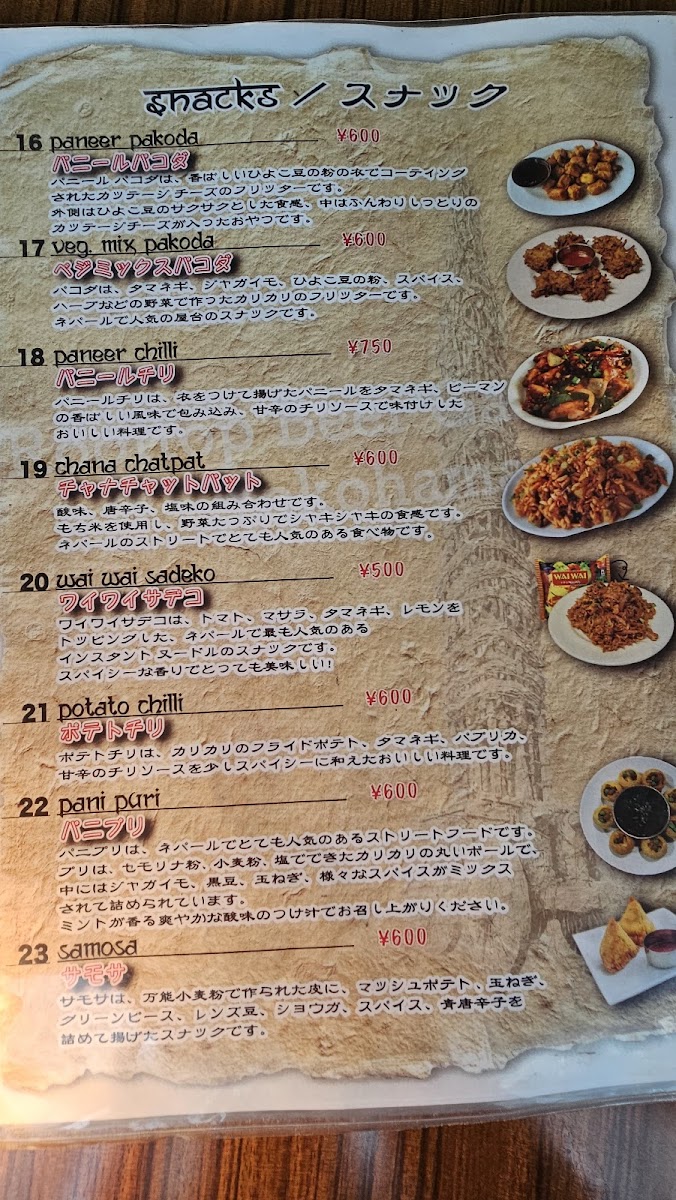 snacks / スナック
16 paneer pakoda ¥600
パニールパコダ
パニール パコダは、香ばしいひよこ豆の粉の衣でコーティング
されたカッテージ チーズのフリッターです。
外側はひよこ豆のサクサクとした食感、中はふんわりしっとりの
カッテージチーズが入ったおやつです。
17 veg. mix pakoda ¥600
ベジミックスパコダ
パコダは、タマネギ、ジャガイモ、ひよこ豆の粉、スパイス、
ハーブなどの野菜で作ったカリカリのフリッターです。
ネパールで人気の屋台のスナックです。
18 paneer chilli ¥750
パニールチリ
パニールチリは、衣をつけて揚げたパニールをタマネギ、ピーマン
の香ばしい風味で包み込み、甘辛のチリソースで味付けした
おいしい料理です。
19 chana chatpat ¥600
チャナチャットパット
酸味、唐辛子、塩味の組み合わせです。
もち米を使用し、野菜たっぷりでシャキシャキの食感です。
ネパールのストリートでとても人気のある食べ物です。
20 wai wai sadeko ¥500
ワイワイサデコ
ワイワイサデコは、トマト、マサラ、タマネギ、レモンを
トッピングした、ネパールで最も人気のある
インスタント ヌードルのスナックです。
スパイシーな香りでとっても美味しい!
WAI WAI
21 potato chilli ¥600
ポテトチリ
ポテトチリは、カリカリのフライドポテト、タマネギ、パプリカ、
甘辛のチリソースを少しスパイシーに和えたおいしい料理です。
22 pani puri ¥600
パニプリ
パニプリは、ネパールでとても人気のあるストリートフードです。
プリは、セモリナ粉、小麦粉、塩でできたカリカリの丸いボールで、
中にはジャガイモ、黒豆、玉ねぎ、様々なスパイスがミックス
されて詰められています。
ミントが香る爽やかな酸味のつけ汁でお召し上がりください。
23 samosa ¥600
サモサ
サモサは、万能小麦粉で作られた皮に、マッシュポテト、玉ねぎ、
グリーンピース、レンズ豆、ショウガ、スパイス、青唐辛子を
詰めて揚げたスナックです。